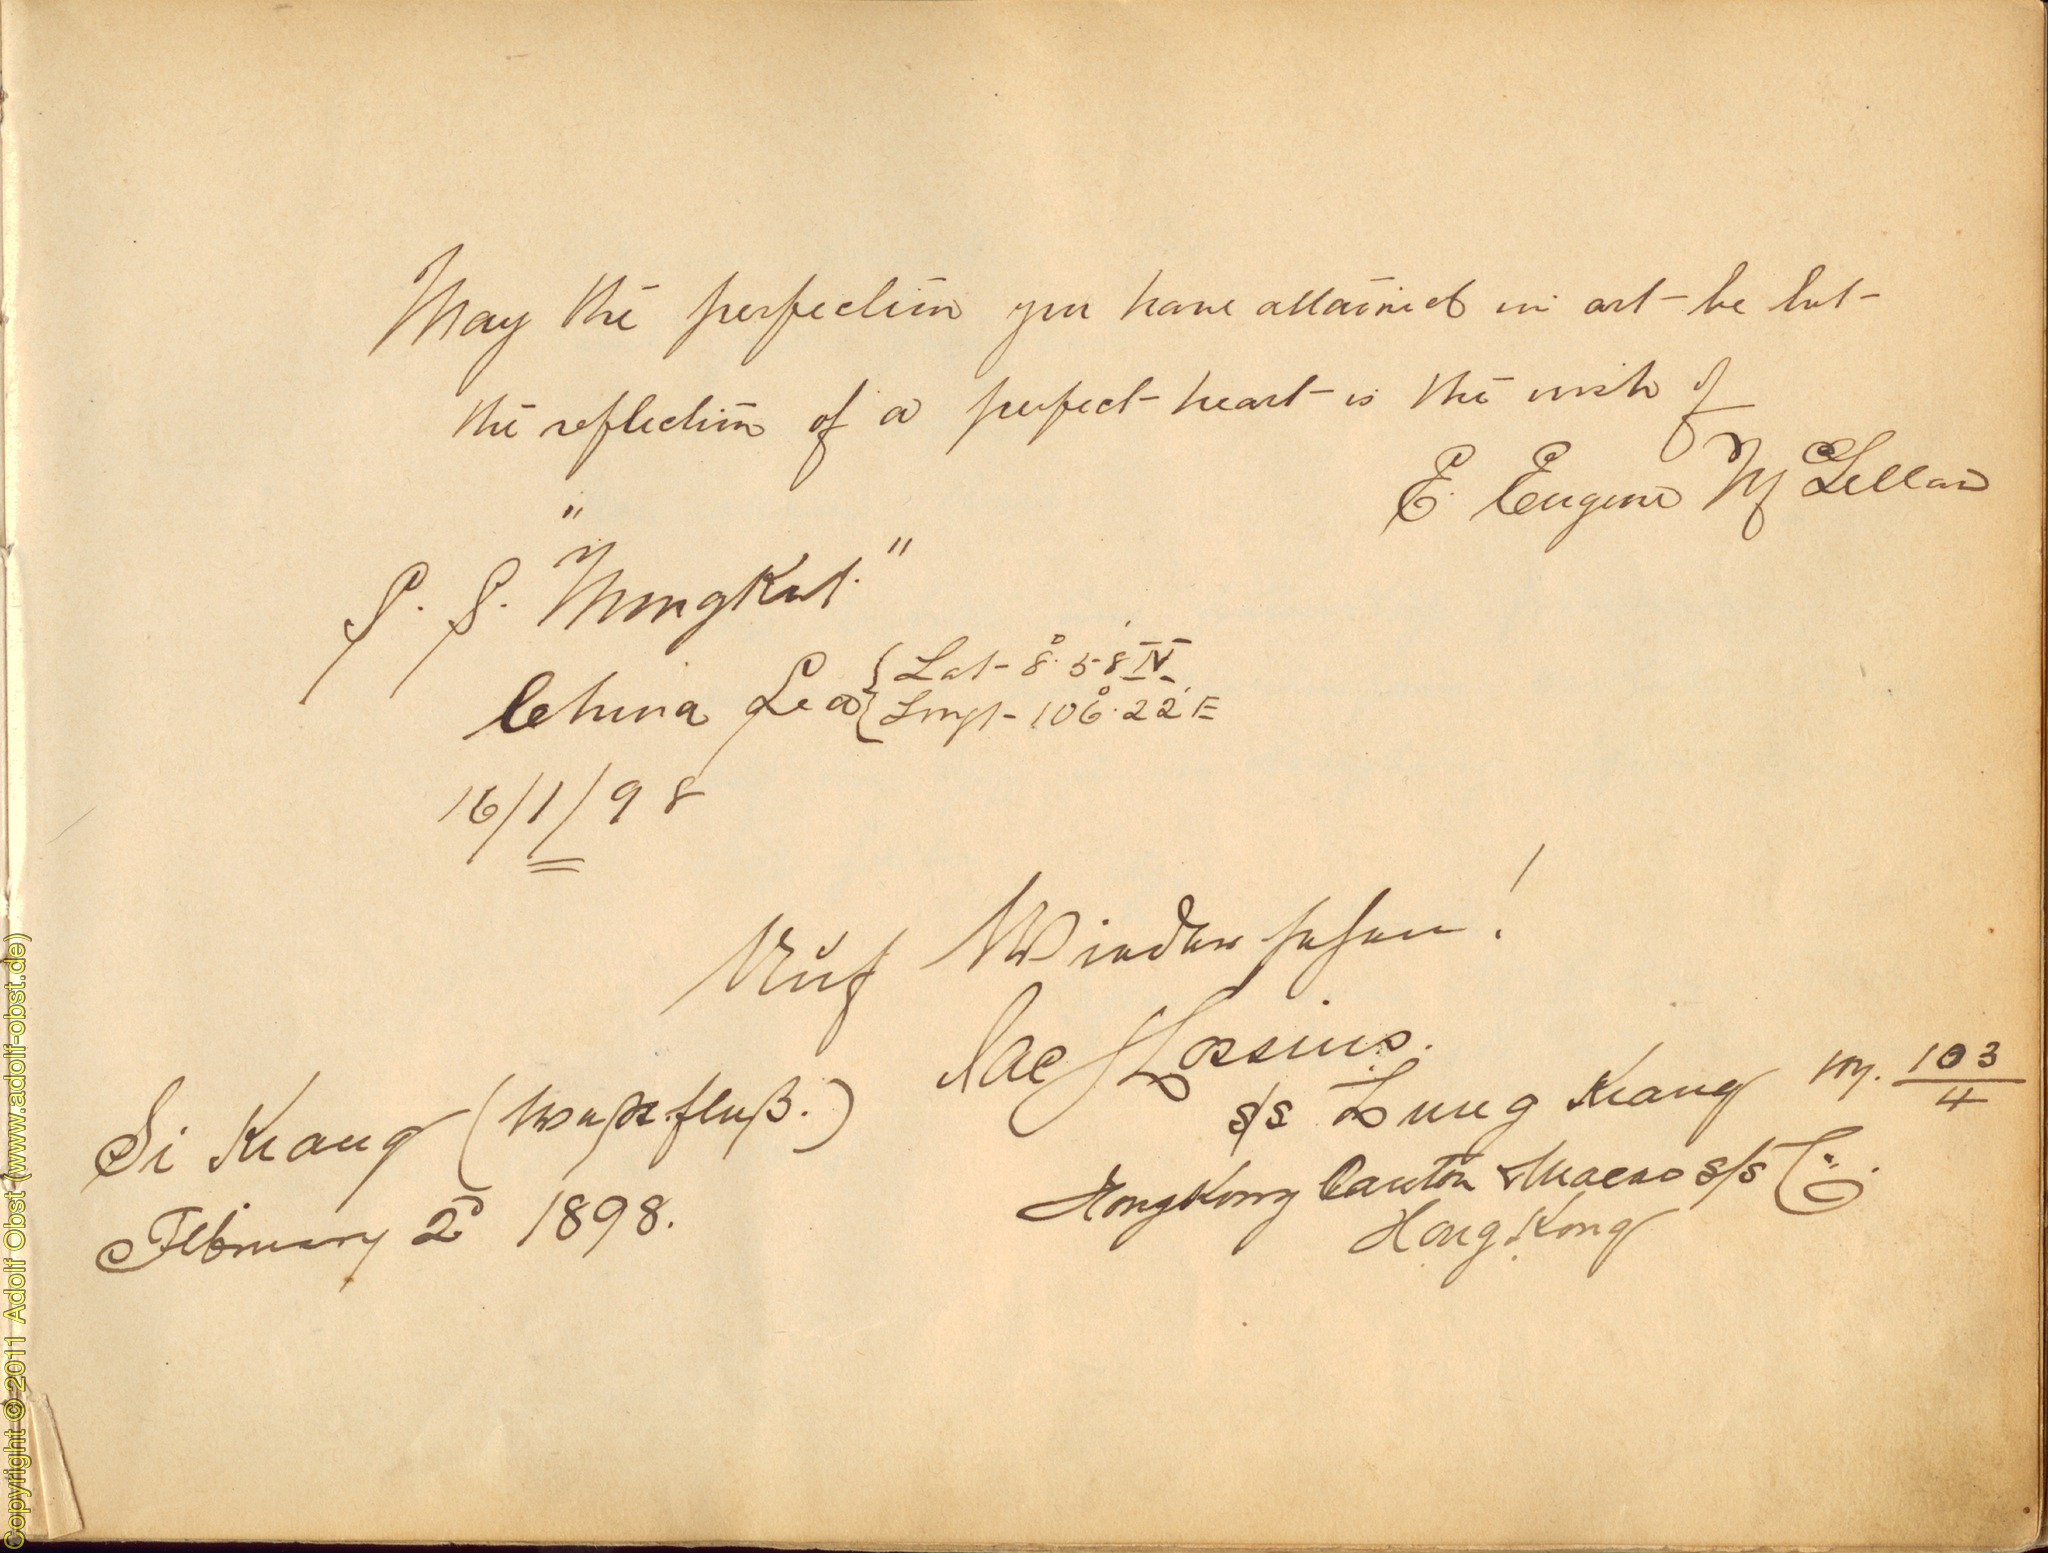 May the perfection you have attained in art be but
the reflection of a perfect heart is the wish of
E. Eugene McLellan
S. S. "Mongkut."
China Sea { Lat- 8°.58' N
Longt- 106°.22' E
16/1/98
Auf Wiedersehen!
Jac Lossius.
s/s Lung Kiang
103/4
Si Kiang (Westfluß.)
HongKong Canton & Macao s/s Co.
February 2d 1898.
Hong Kong
Copyright © 2011 Adolf Obst (www.adolf-obst.de)